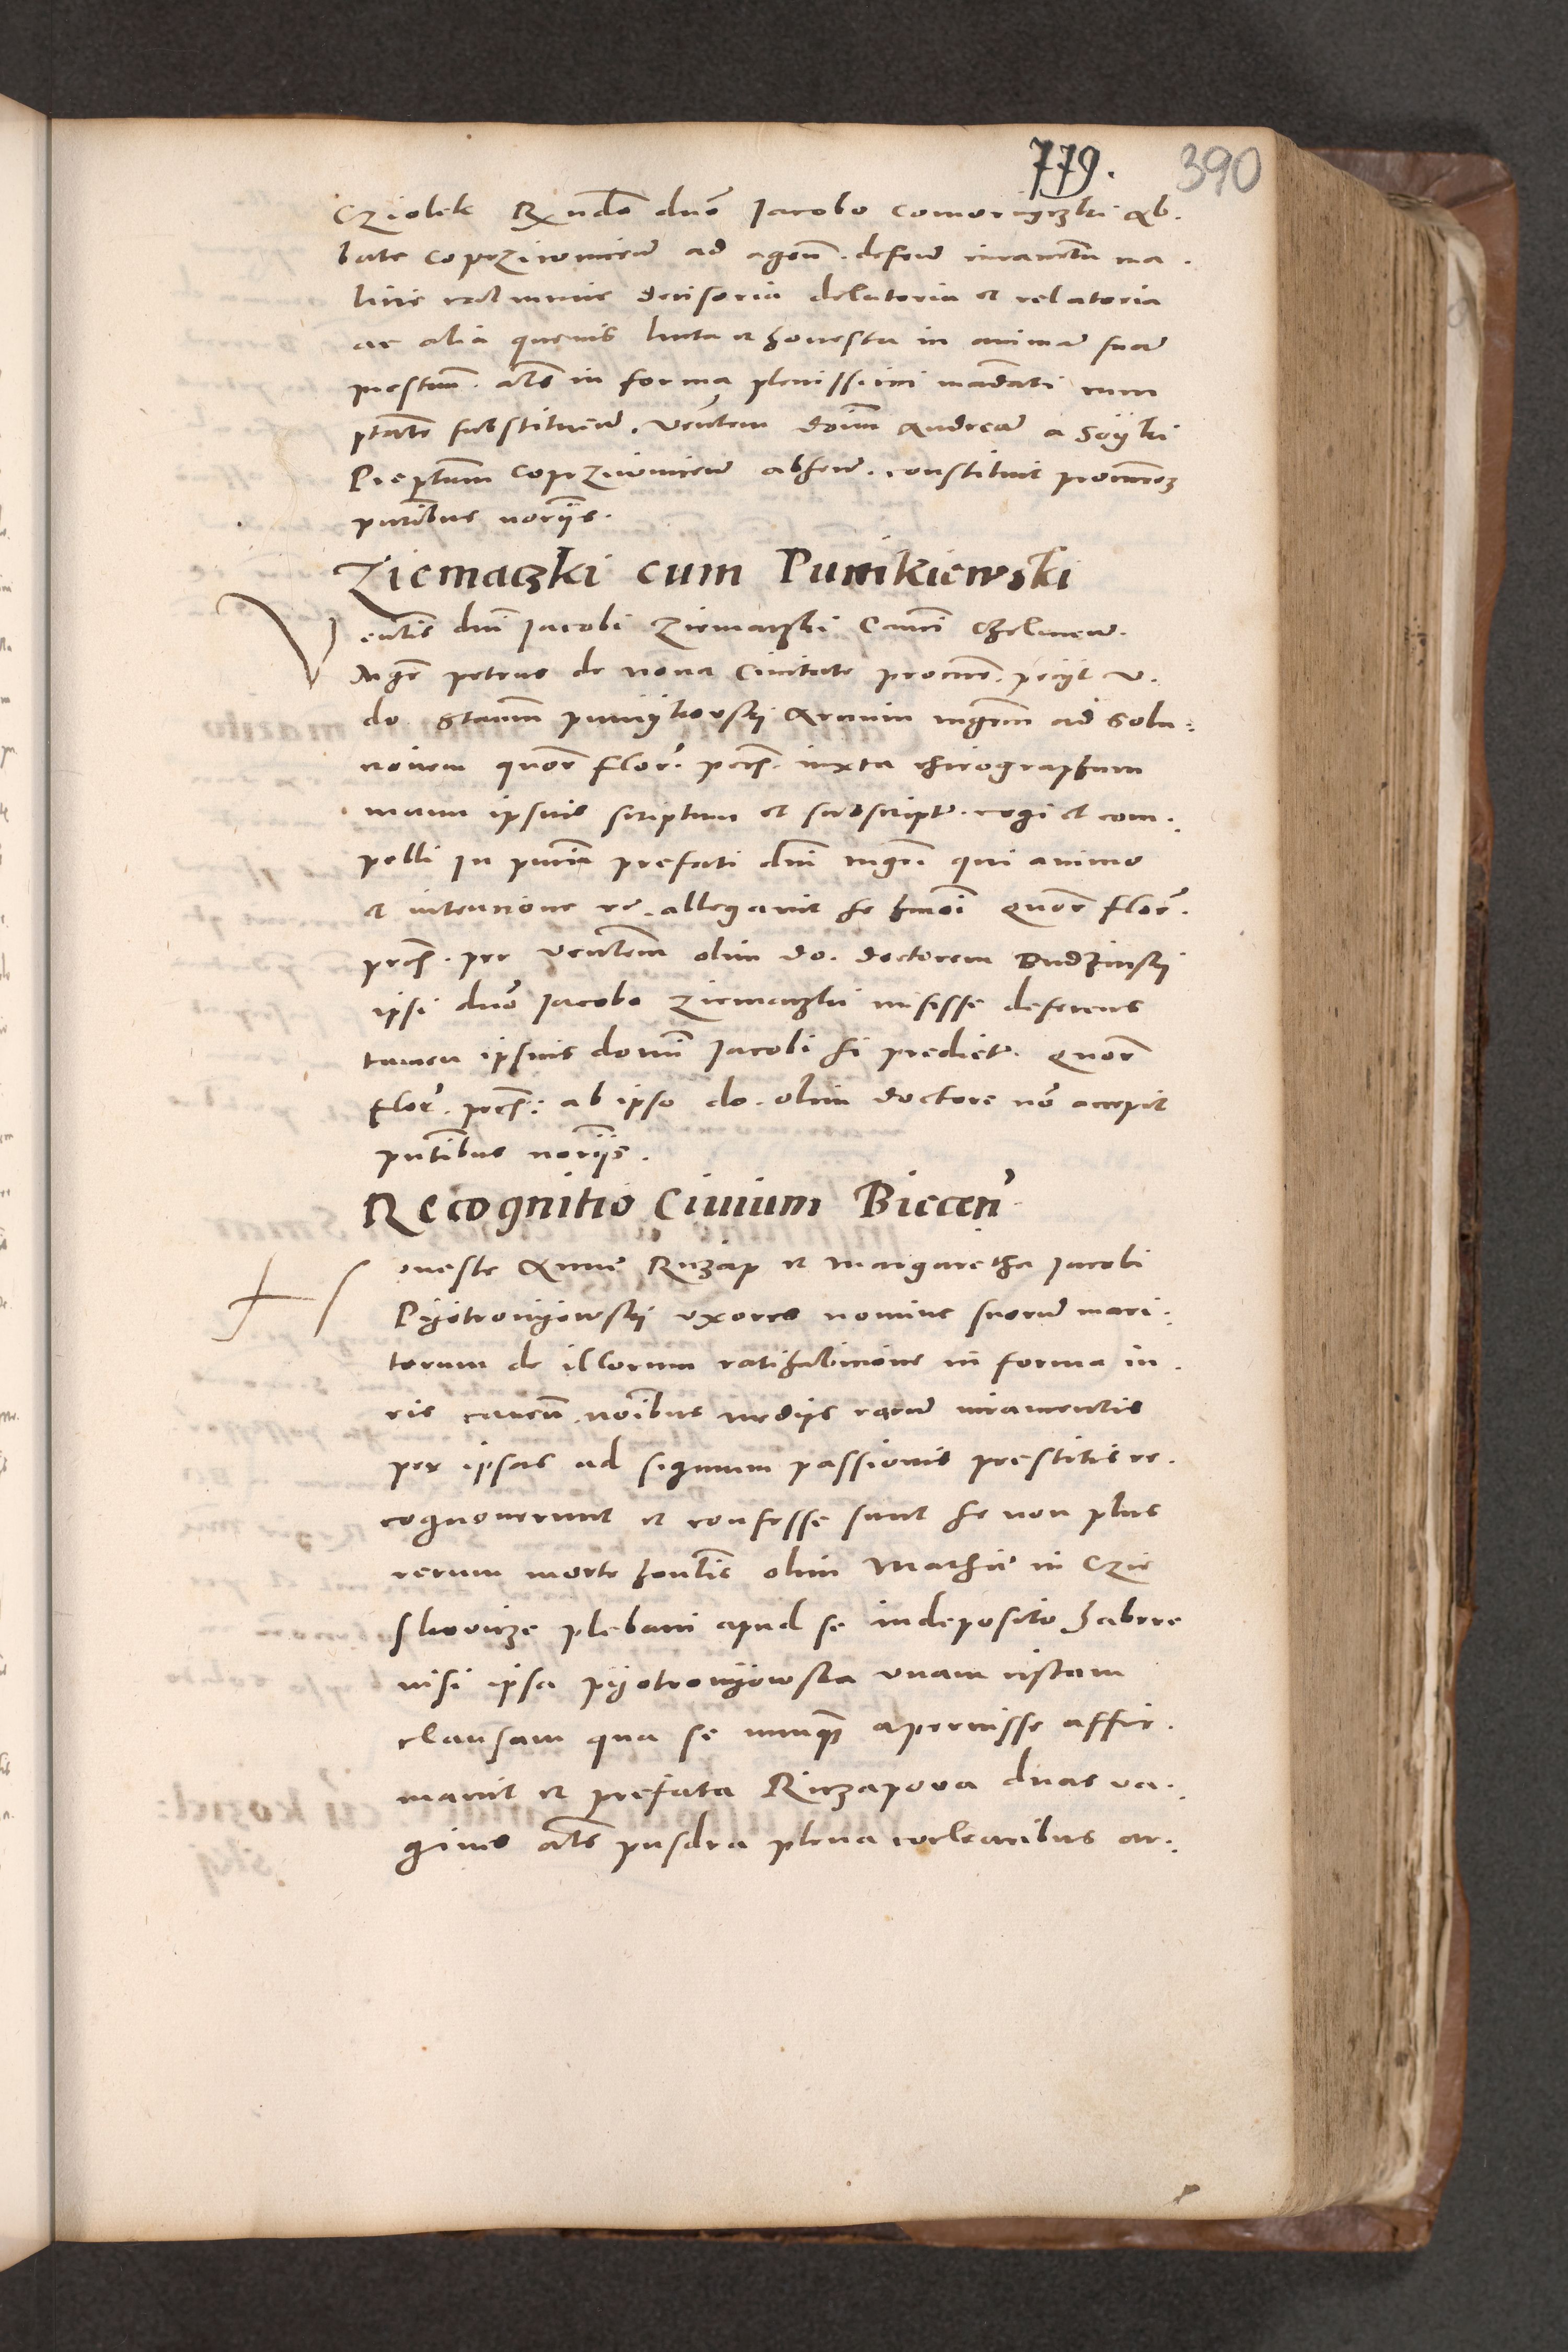 779. 390
Cziolek Rndo dno Jacobo Comornyczki Ab.
bate Coprziwnicen ad agen. defen iuramentu ma.
licie decisoria delatoria et relatoria
ac alia quevis licita et honesta in animar suar
prestan. als in forma plenissimi mandati cum
ptate substituen. Ventem doim Andrea a Soyki
Preptum Coprziwnicen absen. constituit procutorez
pntibus notrijs.
Ziemaczki cum Punikiewski
Ventis dni Jacobi Ziemaczki Canci Chelmen.
Mgr petrus de nova Civitate procutor. pecijt v.
do. Stanm Artium mgrm ad Solu
cionem quor flor. pecs. iuxta chirographum
manu ipsius scriptum et subscript. cogi et com.
pelli In pntia prefati dni mgri qui animo
et intencione re. allegavit se hmoi quor flor.
pecs. per ventem olim do. doctorem Budzinskij
ipsi dno Jacobo Ziemaczki misisse deferens
tamen ipsius domi Jacobi si predict. quor
flor. pecs. ab ipso do. olim doctore no accepit
pntibus notrijs.
Recognitio Civium Biecen
Honeste Anna Ruzap et Margaretha Jacobi
Pijotronijowskij uxores nomine suorum mari.
torum de illorum ratihabicione in forma iu.
ris caven. noibus medijs earum iuramentis
per ipsas ad signum passionis prestitis re.
cognoverunt et confesse sunt se non plus
rerum morte hontis olim Mathie in Czie
slkovicze plebani apud se in deposito habere
nisi ipsa Pijotronijowska unam cistam
clausam qua se nunq aperuisse affir.
mavit et prefata Ruzapova duas va.
gines als pusdra plena coclearibus ar.